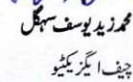 محمد زید یوسف سہگل
چیف ایگزیکٹیو